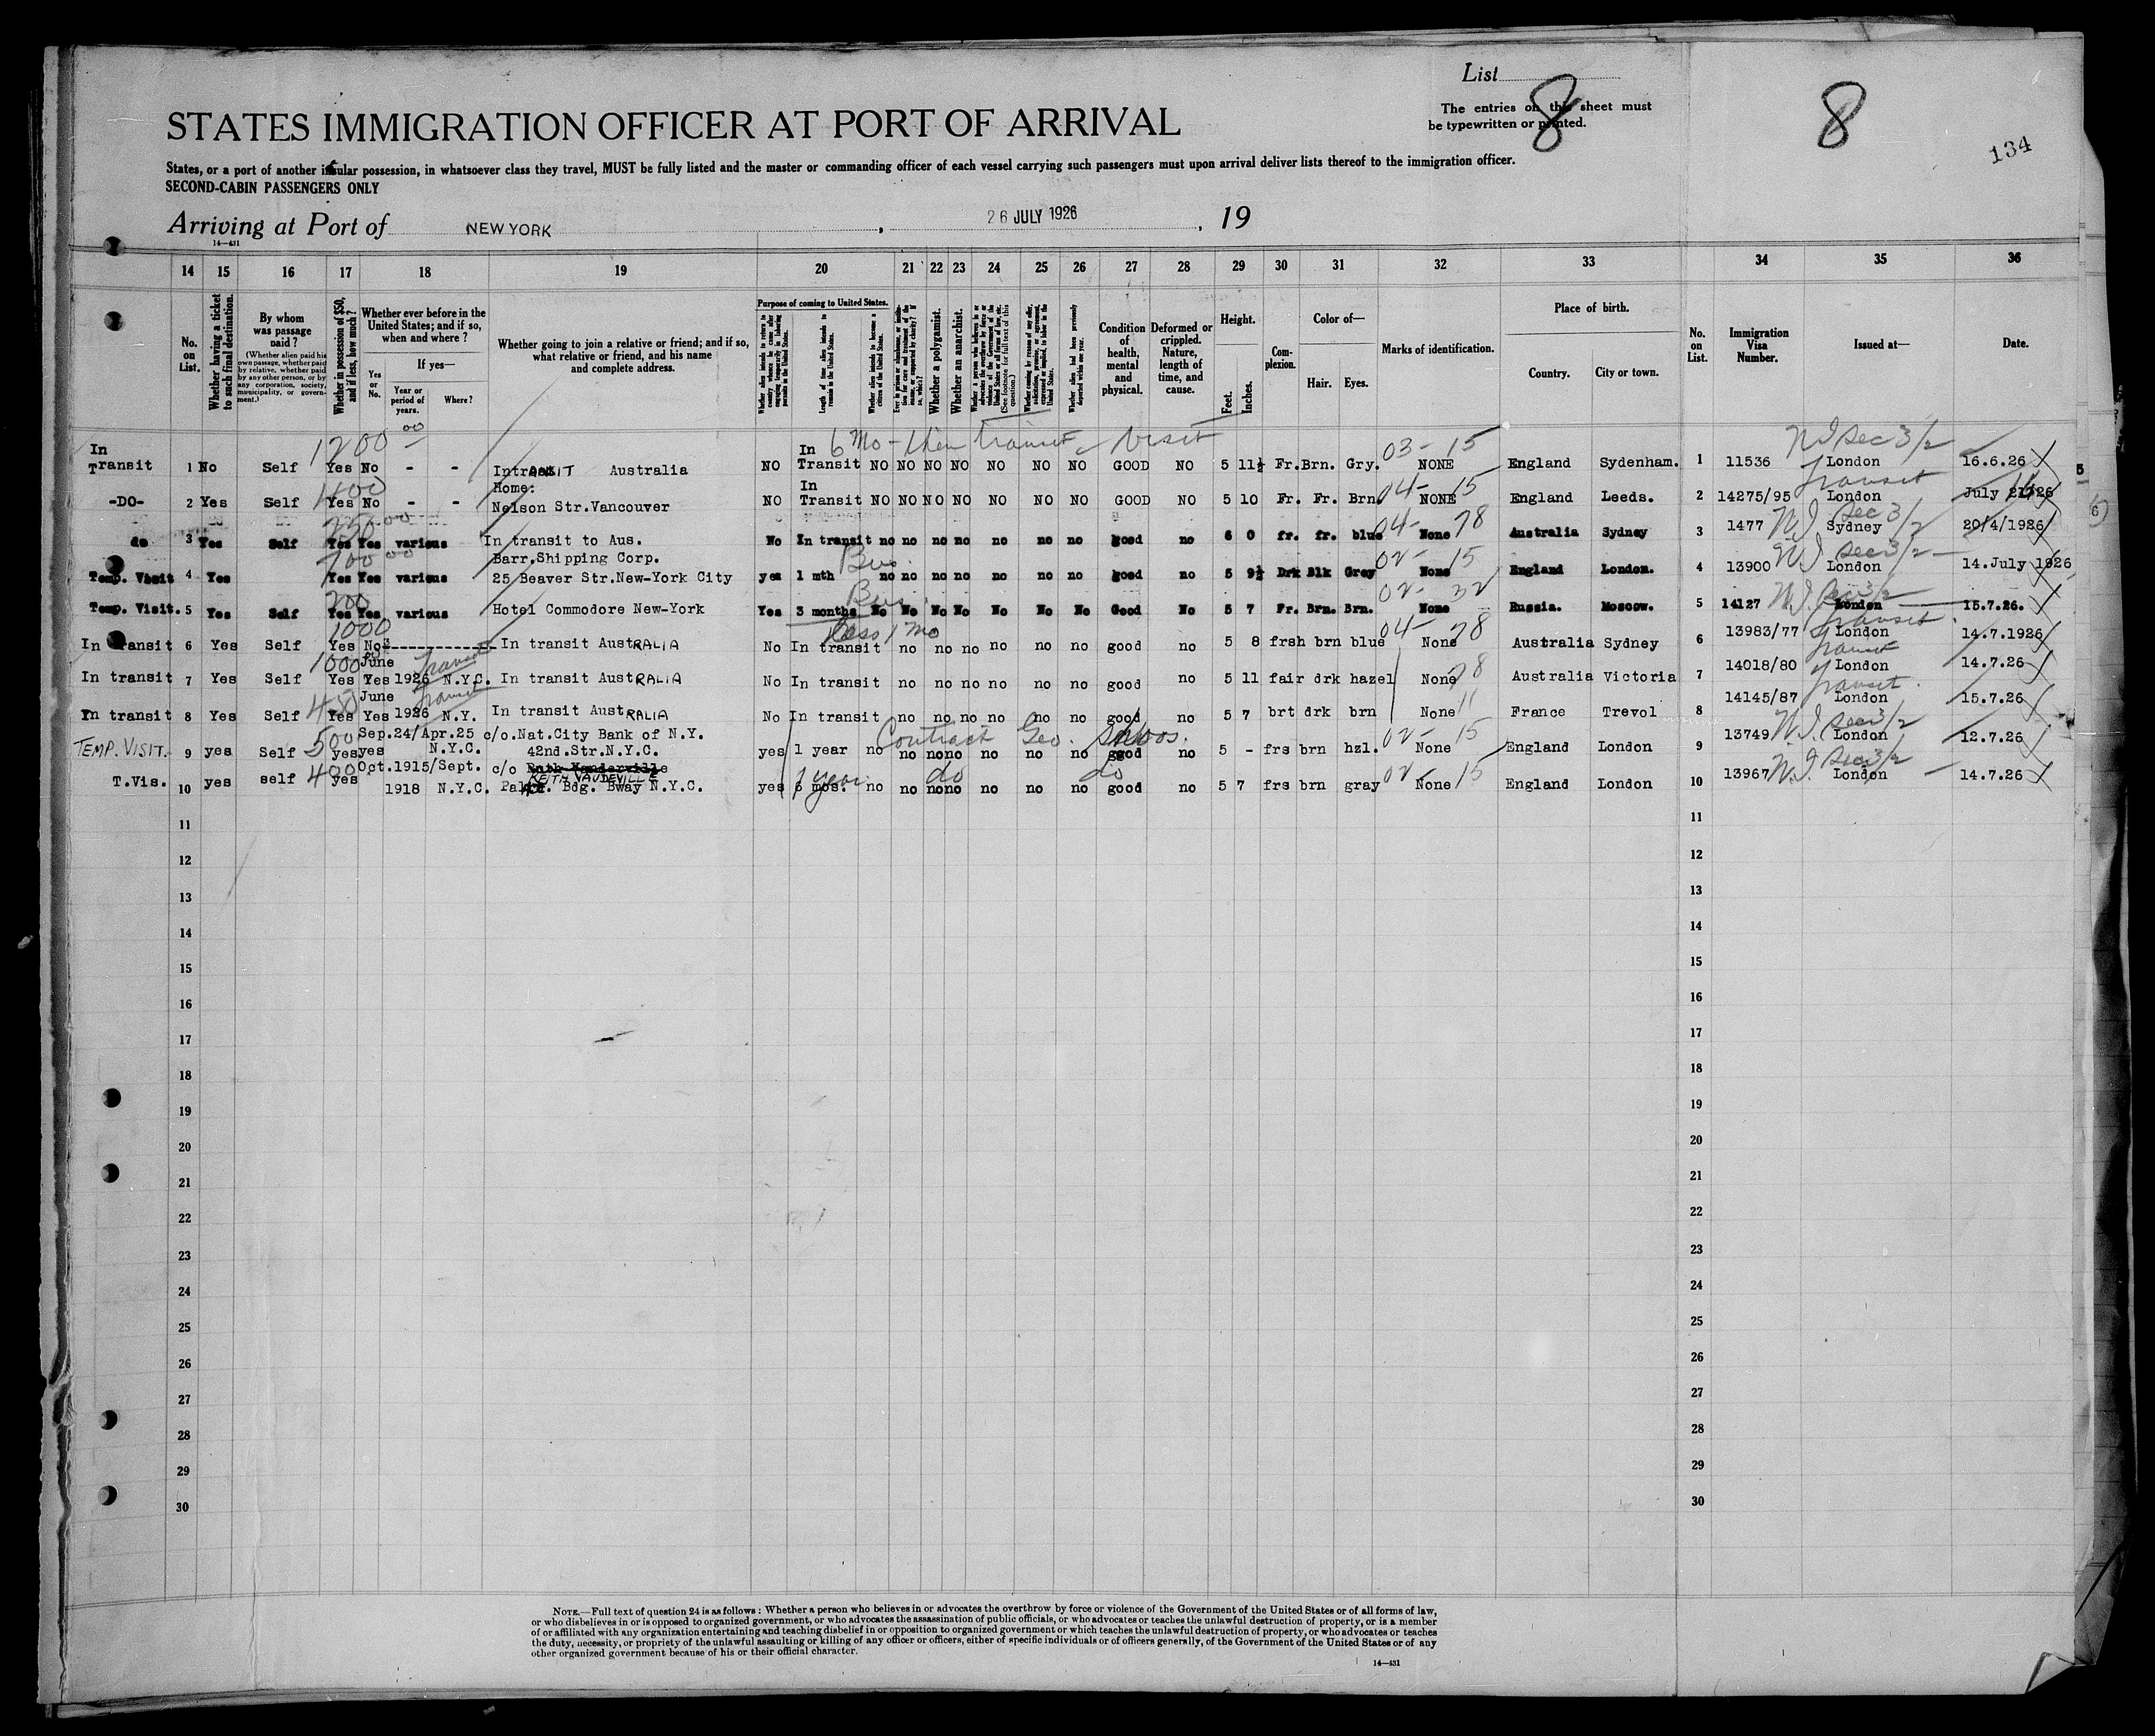 List
8
8
134
The entries on this sheet must
be typewritten or printed.
STATES IMMIGRATION OFFICER AT PORT OF ARRIVAL
States, or a port of another insular possession, in whatsoever class they travel, MUST be fully listed and the master or commanding officer of each vessel carrying such passengers must upon arrival deliver lists thereof to the immigration officer.
SECOND-CABIN PASSENGERS ONLY
Arriving at Port of NEW YORK, 26 JULY 1926, 19
14—431
14 15 16 17 18 19 20 21 22 23 24 25 26 27 28 29 30 31 32 33 34 35 36
No. on List.
Whether having a ticket to such final destination.
By whom was passage paid?
(Whether alien paid his own passage, whether paid by relative, whether paid by any other person, or by any corporation, society, municipality, or government.)
Whether in possession of $50, and if less, how much?
Whether ever before in the United States; and if so, when and where?
Yes or No.
If yes—
Year or period of years.
Where?
Whether going to join a relative or friend; and if so, what relative or friend, and his name and complete address.
Purpose of coming to United States.
Length of time alien intends to remain in the United States.
Whether alien intends to become a citizen of the United States.
Whether a polygamist.
Whether an anarchist.
Condition of health, mental and physical.
Deformed or crippled. Nature, length of time, and cause.
Height.
Feet.
Inches.
Complexion.
Color of—
Hair.
Eyes.
Marks of identification.
Place of birth.
Country.
City or town.
No. on List.
Immigration Visa Number.
Issued at—
Date.
1200 00 6 Mo - then transit Visit 03- 15 NI Sec 3/2
In Transit 1 No Self Yes No - - Intransit Australia NO In Transit NO NO NO NO NO NO NO GOOD NO 5 11½ Fr. Brn. Gry. NONE England Sydenham. 1 11536 London 16.6.26
1400 04- 15 Transit
-DO- 2 Yes Self Yes No - - Home: Nelson Str.Vancouver NO In Transit NO NO NO NO NO NO NO GOOD NO 5 10 Fr. Fr. Brn. NONE England Leeds. 2 14275/95 London July 1926
250 00 04- 78 NI Sec 3/2
do 3 Yes Self Yes Yes various In transit to Aus. No In transit no no no no no no no good no 6 0 fr. fr. blue None Australia Sydney 3 1477 Sydney 20/4/1926
700 00 Bus. 02- 15 NI Sec 3/2
Temp. Visit 4 Yes Yes Yes various Barr.Shipping Corp. 25 Beaver Str.New-York City yes 1 mth no no no no no no no good no 5 9½ Drk Blk Grey None England London. 4 13900 London 14.July 1926
200 Bus. 02- 32 NI Sec 3/2
Temp. Visit. 5 Yes Self Yes Yes various Hotel Commodore New-York Yes 3 months No No No No No No No Good No 5 7 Fr. Brn. Brn. None Russia. Moscow. 5 14127 London 15.7.26.
1000 Less 1 Mo 04- 78 Transit
In Transit 6 Yes Self Yes No - In transit AustRALIA No In transit no no no no no no good no 5 8 frsh brn blue None Australia Sydney 6 13983/77 London 14.7.1926
1000 Transit 78 Transit
In transit 7 Yes Self Yes Yes June 1926 N.Y.C. In transit AustRALIA No In transit no no no no no no good no 5 11 fair drk hazel None Australia Victoria 7 14018/80 London 14.7.26
450 Transit 11 Transit
In transit 8 Yes Self Yes Yes June 1926 N.Y. In transit AustRALIA No In transit no no no no no no good no 5 7 brt drk brn None France Trevol 8 14145/87 London 15.7.26
500 Contract Geo. 02- 15 NI Sec 3/2
TEMP. VISIT. 9 yes Self yes yes Sep.24/Apr.25 N.Y.C. c/o.Nat.City Bank of N.Y. 42nd.Str.N.Y.C. yes 1 year no no no no no no no good no 5 - frs brn hzl. None England London 9 13749 London 12.7.26
400 1 year do do 02- 15 NI Sec 3/2
T.Vis. 10 yes self yes Oct.1915/Sept. 1918 N.Y.C. c/o KEITH VAUDEVILLE Palace. Bdg. Bway N.Y.C. yes 6 mos. no no no no no no no good no 5 7 frs brn gray None England London 10 13967 London 14.7.26
11 11
12 12
13 13
14 14
15 15
16 16
17 17
18 18
19 19
20 20
21 21
22 22
23 23
24 24
25 25
26 26
27 27
28 28
29 29
30 30
NOTE.—Full text of question 24 is as follows: Whether a person who believes in or advocates the overthrow by force or violence of the Government of the United States or of all forms of law,
or who disbelieves in or is opposed to organized government, or who advocates the assassination of public officials, or who advocates or teaches the unlawful destruction of property, or is a member
of or affiliated with any organization entertaining and teaching disbelief in or opposition to organized government or which teaches the unlawful destruction of property, or who advocates or teaches
the duty, necessity, or propriety of the unlawful assaulting or killing of any officer or officers, either of specific individuals or of officers generally, of the Government of the United States or of any
other organized government because of his or their official character.
14—431